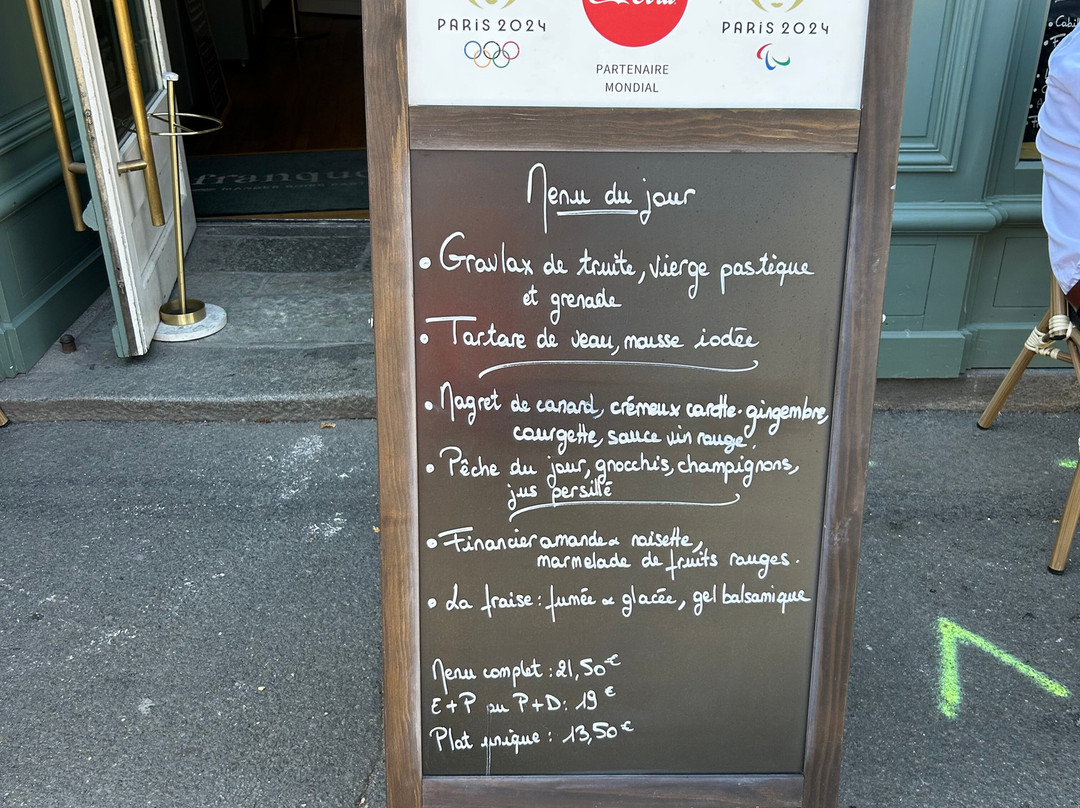 PARIS 2024
Coca-Cola
PARIS 2024
PARTENAIRE
MONDIAL
franqu
Menu du jour
• Gravlax de truite, vierge pastèque
et grenade
• Tartare de veau, mousse iodée
• Magret de canard, crémeux carotte-gingembre,
courgette, sauce vin rouge.
• Pêche du jour, gnocchis, champignons,
jus persillé
• Financier amande & noisette,
marmelade de fruits rouges.
• La fraise : fumée & glacée, gel balsamique
Menu complet : 21,50€
E+P ou P+D : 19€
Plat unique : 13,50€